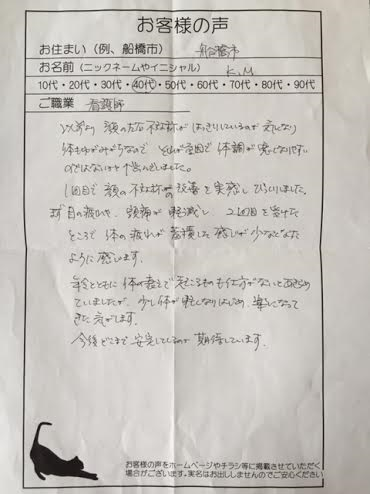 お客様の声
お住まい（例、船橋市） 船橋市
お名前（ニックネームやイニシャル） K.M
10代・20代・30代・40代・50代・60代・70代・80代・90代
ご職業 看護師
以前より 顔の左右不対称がはっきりしているのが 気になり
体もゆがみがちなので それが原因で 体調が 悪くなりやすい
のではないかと 悩んでいました。
1回目で 顔の不対称の改善を実感し びっくりしました。
まず 目の疲れや、頭痛が 軽減し 2回目を受けた
ところで 体の疲れが 蓄積した感じが 少なくなった
ように感じます。
年令とともに 体の衰えで 起こるものも仕方がないとあきらめ
ていましたが、少し体が 軽くなりはじめ、楽になって
きた気がします。
今後どこまで 安定しているのか 期待しています。
お客様の声をホームページやチラシ等に掲載させていただく
場合がございます。実名はお出ししませんのでご安心ください